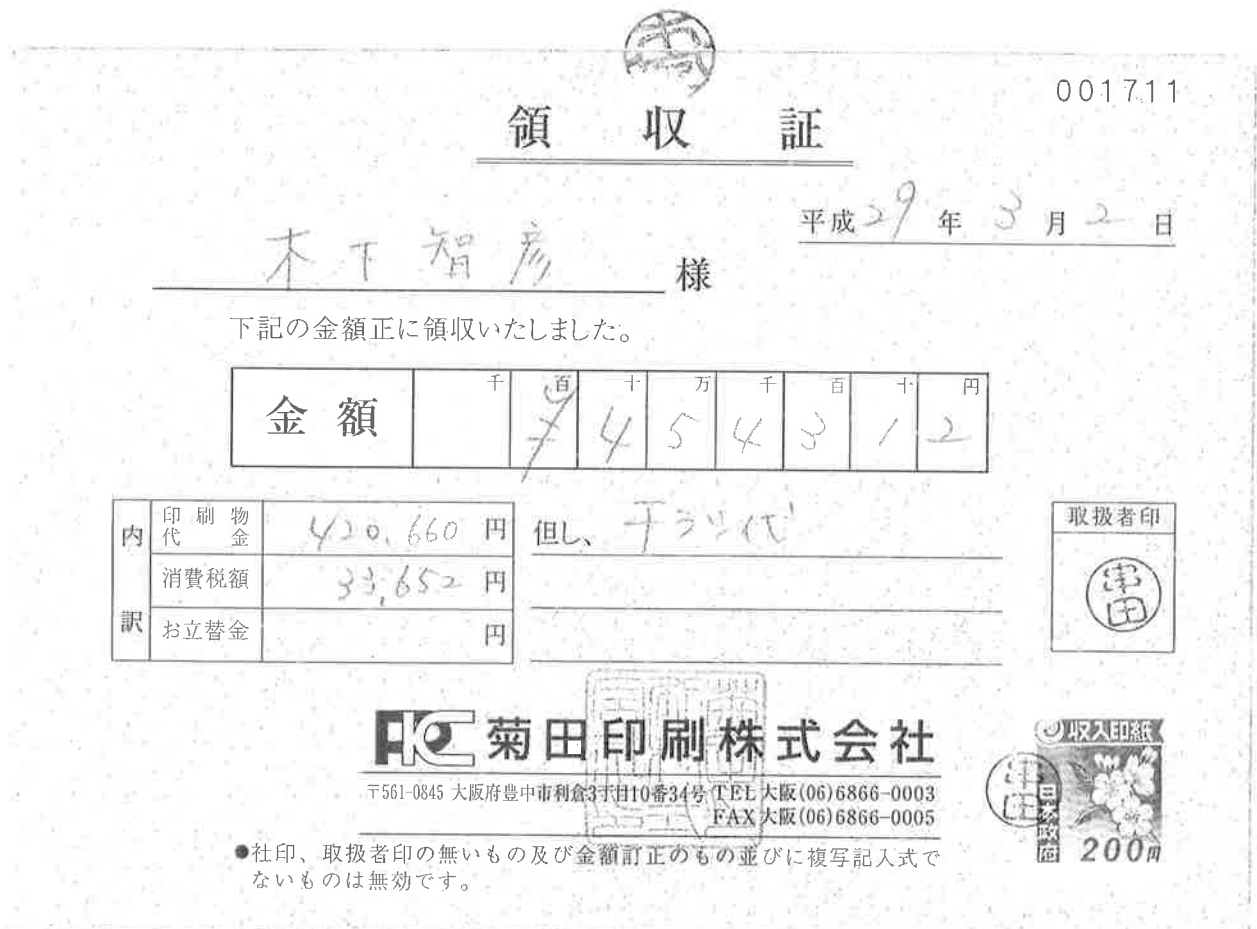 001711
領収証
平成29年3月2日
木下智彦 様
下記の金額正に領収いたしました。
金額 千 百 十 万 千 百 十 円
¥ 4 5 4 3 1 2
内訳
印刷物代金 420,660 円
消費税額 33,652 円
お立替金 円
但し、チラシ代
取扱者印
菊田印刷株式会社
〒561-0845 大阪府豊中市利倉3丁目10番34号 TEL 大阪(06)6866-0003
FAX 大阪(06)6866-0005
収入印紙
日本政府
200円
●社印、取扱者印の無いもの及び金額訂正のもの並びに複写記入式で
ないものは無効です。